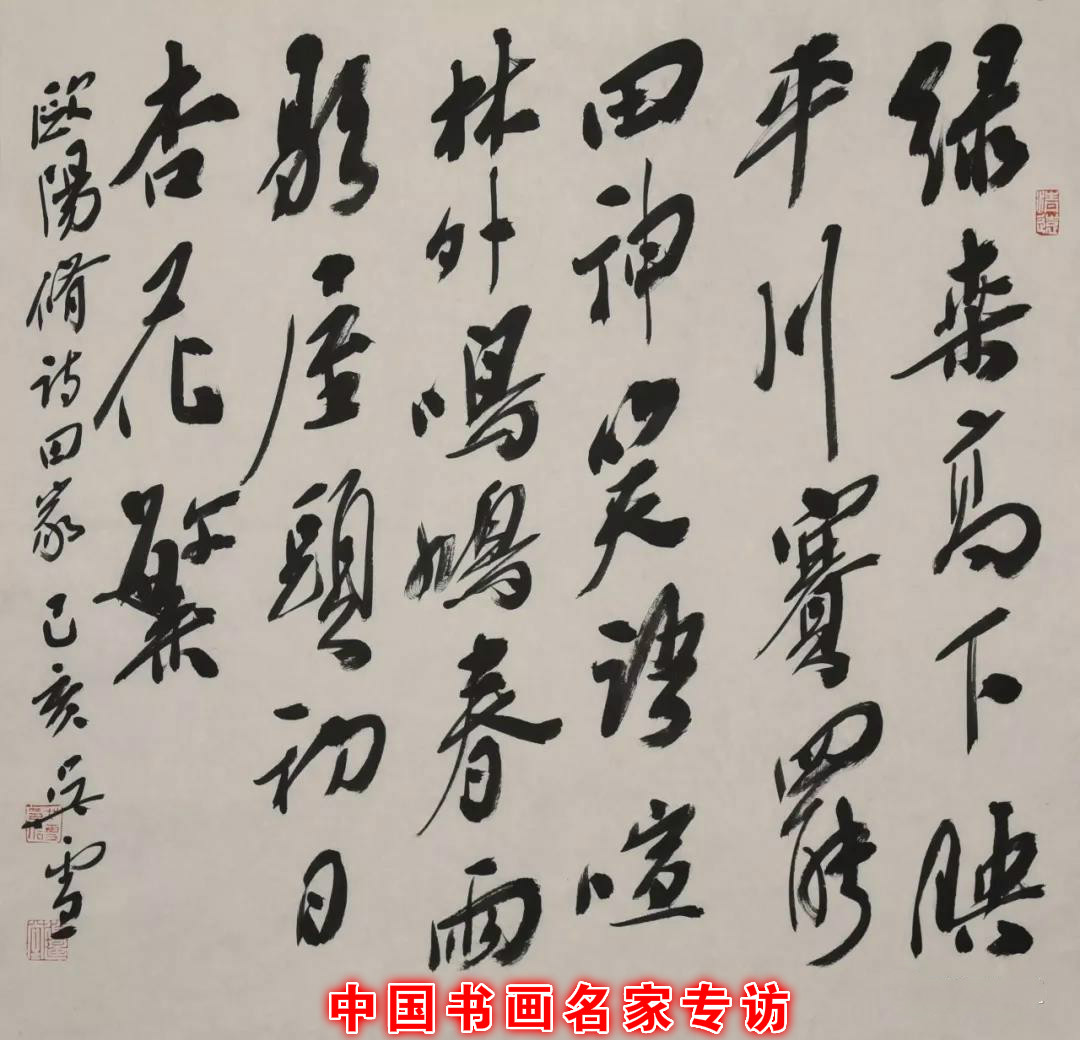 绿桑高下映
平川賽罷
田神笑語喧
林外鳴鳩春雨
歇屋頭初日
杏花繁
歐陽脩詩田家 己亥 吴雪
中国书画名家专访